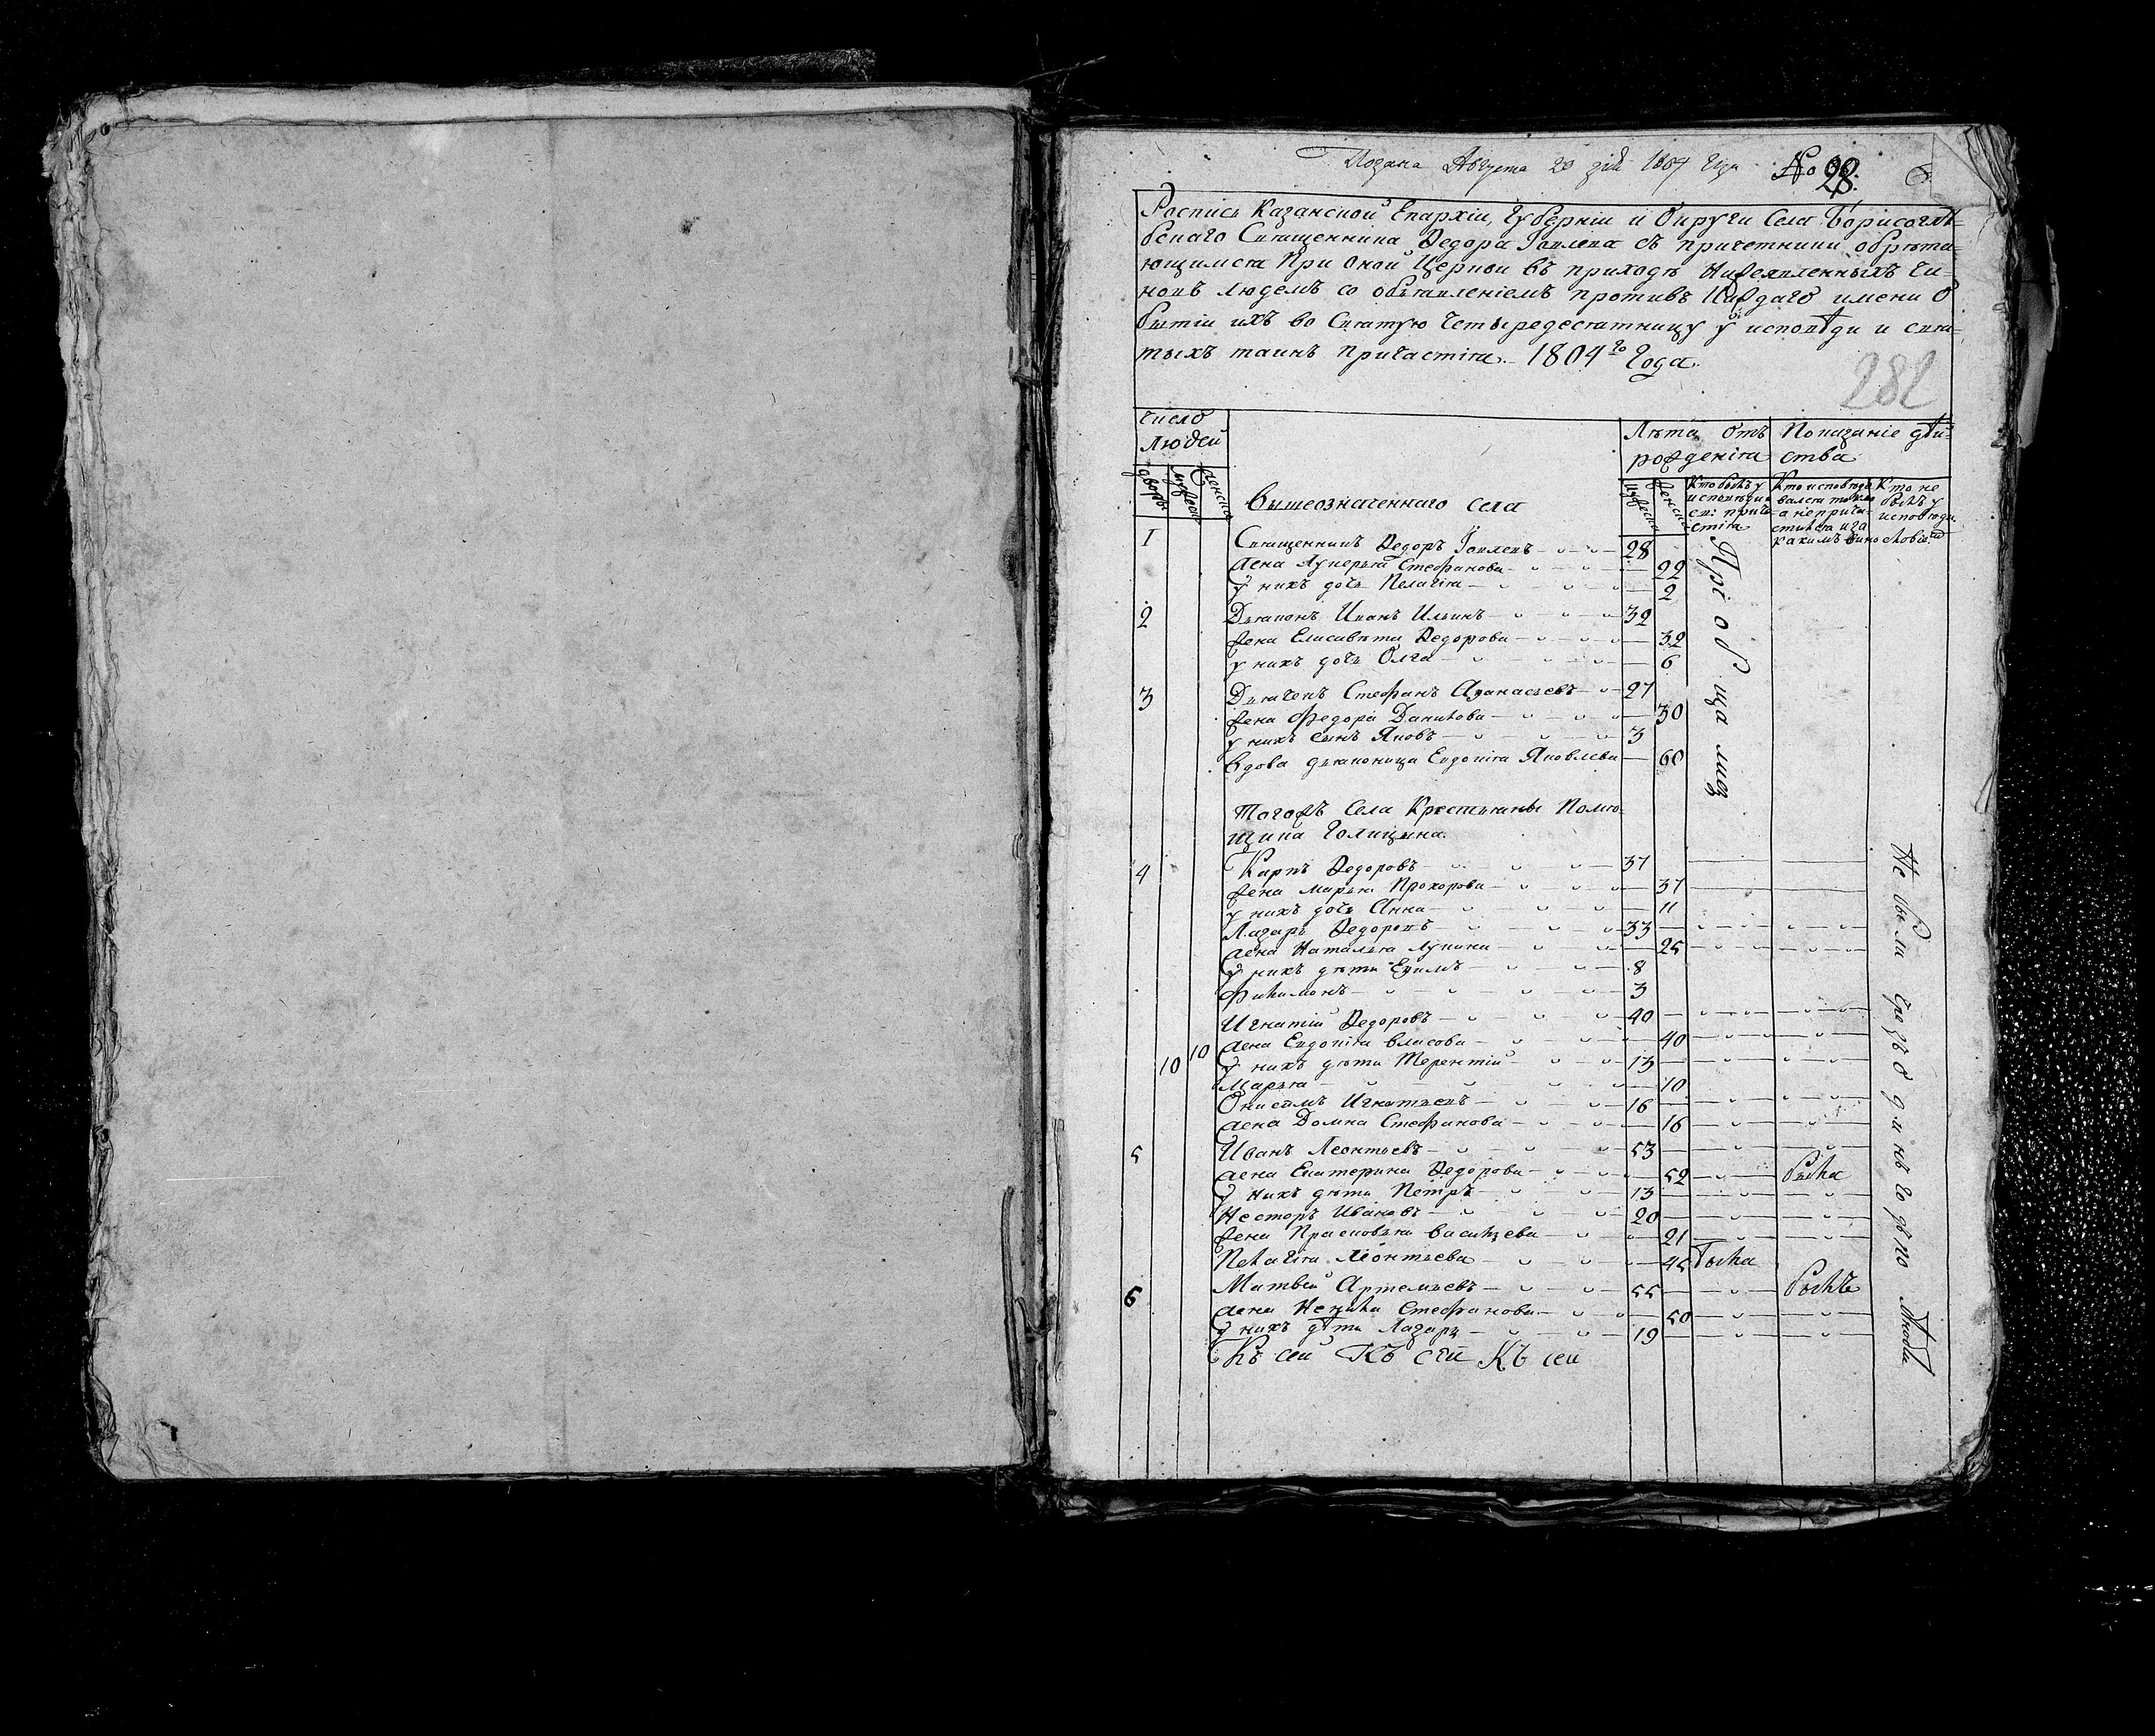 Подана Августа 20 дня 1804 года № 28.
Роспись Казанской Епархіи, Губерніи и Округи Села Борисоглѣ-
бскаго Священника Ѳедора Іовлева съ причетники обрѣта-
ющимся При оной Церкви въ приходѣ Нижеявленныхъ чи-
новъ людемъ со объявленіемъ противъ Каждаго имени О
бытіи ихъ во Святую Четыредесятницу у исповѣди и свя-
тыхъ таинъ причастія. 1804го Года.
282
Число
людей
Лѣта отъ
рожденія
Показаніе дѣй-
ства
дворы
мужеск
женска
Вышеозначеннаго села
мужеска
женска
Кто былъ у
исповѣди и
св: прича
стія
Кто исповѣдо
вался токмо
а не прича-
стился и за
какимъ винословіемъ
Кто не
былъ у
исповѣди
1 Священникъ Ѳедоръ Іовлевъ 28
жена Лукерья Стефанова 22
у нихъ дочь Пелагія 2
2 Дьяконъ Иванъ Ильинъ 32
жена Елисавета Ѳедорова 32
у нихъ дочь Олга 6
3 Дьячекъ Стефанъ Аѳанасьевъ 27
жена Федора Данилова 30
у нихъ сынъ Яковъ 3
вдова дьяконица Евдокія Яковлева 60
Пріобщались
Тогожъ Села Крестьяны Помѣ-
щика Голицына.
4 Карпъ Ѳедоровъ 37
жена марья Прохорова 37
у нихъ дочь Анна 11
Лазарь Ѳедоровъ 33
жена Наталья Лукина 25
у нихъ дѣти Ефимъ 8
Филимонъ 3
Игнатій Ѳедоровъ 40
жена Евдокія власова 40
10 10 у нихъ дѣти Терентій 13
Марья 10
Онисимъ Игнатьевъ 16
жена Домна Стефанова 16
5 Иванъ Леонтьевъ 53
жена Екатерина Ѳедорова 52 была
у нихъ дѣти Петръ 13
Несторъ Ивановъ 20
жена Прасковья васильева 21
Пелагія Леонтьева 45 была
6 Матвей Артемьевъ 55 былъ
жена Ненила Стефанова 50
у нихъ дѣти Лазарь 19
Къ сей Къ сей Къ сей
Не были